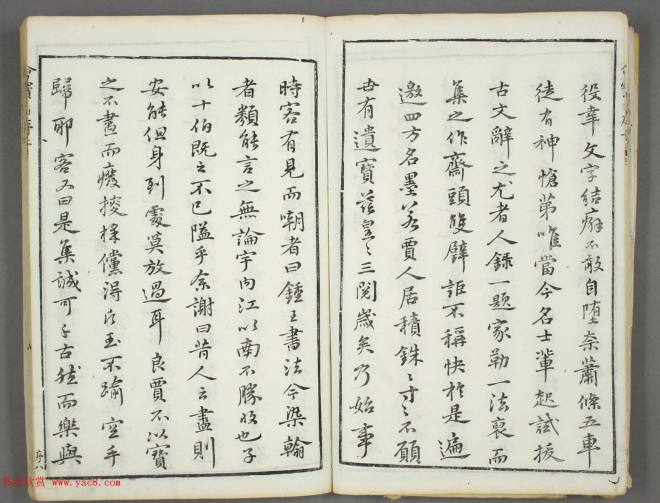 役幸文字結癖不敢自墮柰蕭條五車
徒有神愴第唯當今名士軰起試拔
古文辭之尤者人錄一題家勒一法裒而
集之作齋頭雙璧詎不稱快於是遍
邀四方名墨若賈人居積銖〻寸〻不願
世有遺寶茲皇〻三閱歲矣乃始事
時客有見而嘲者曰鍾王書法今染翰
者類能言之無論宇內江以南不勝收也子
以十伯既之不已隘乎余謝曰昔人云盡則
安能但身到處莫放過耳良賈不以寶
之不盡而癈採儻得片玉不踰空手
歸耶客又曰是集誠可千古然而樂與
书法欣赏 www.yac8.com